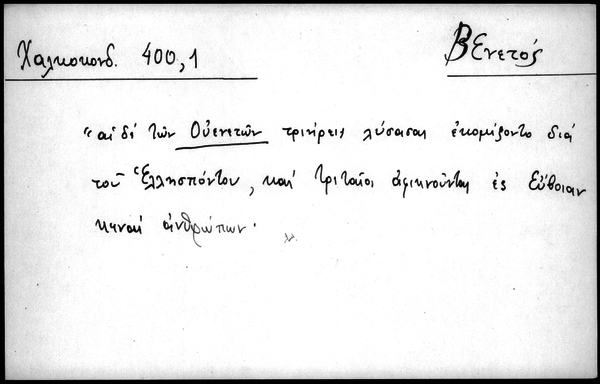 Χαλκοκονδ. 400,1
Βενετός
"αἱ δὲ τῶν Οὐενετῶν τριήρεις λύσασαι ἐκομίζοντο διά
τοῦ Ἑλλησπόντου, καί τριταῖοι ἀφικνοῦνται ἐς Εὔβοιαν
κεναί ἀνθρώπων.